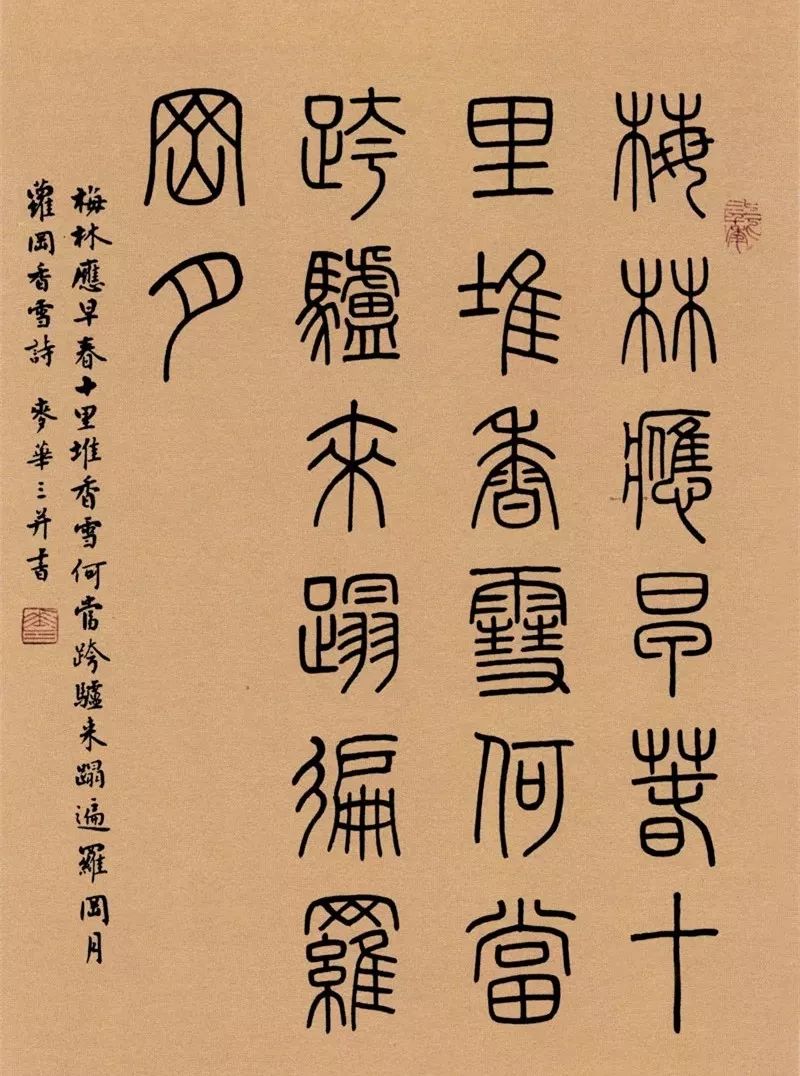 梅林應早春十
里堆香雪何當
跨驢來蹋徧羅
岡月
梅林應早春十里堆香雪何當跨驢來蹋遍羅岡月
蘿岡香雪詩 麥華三并書